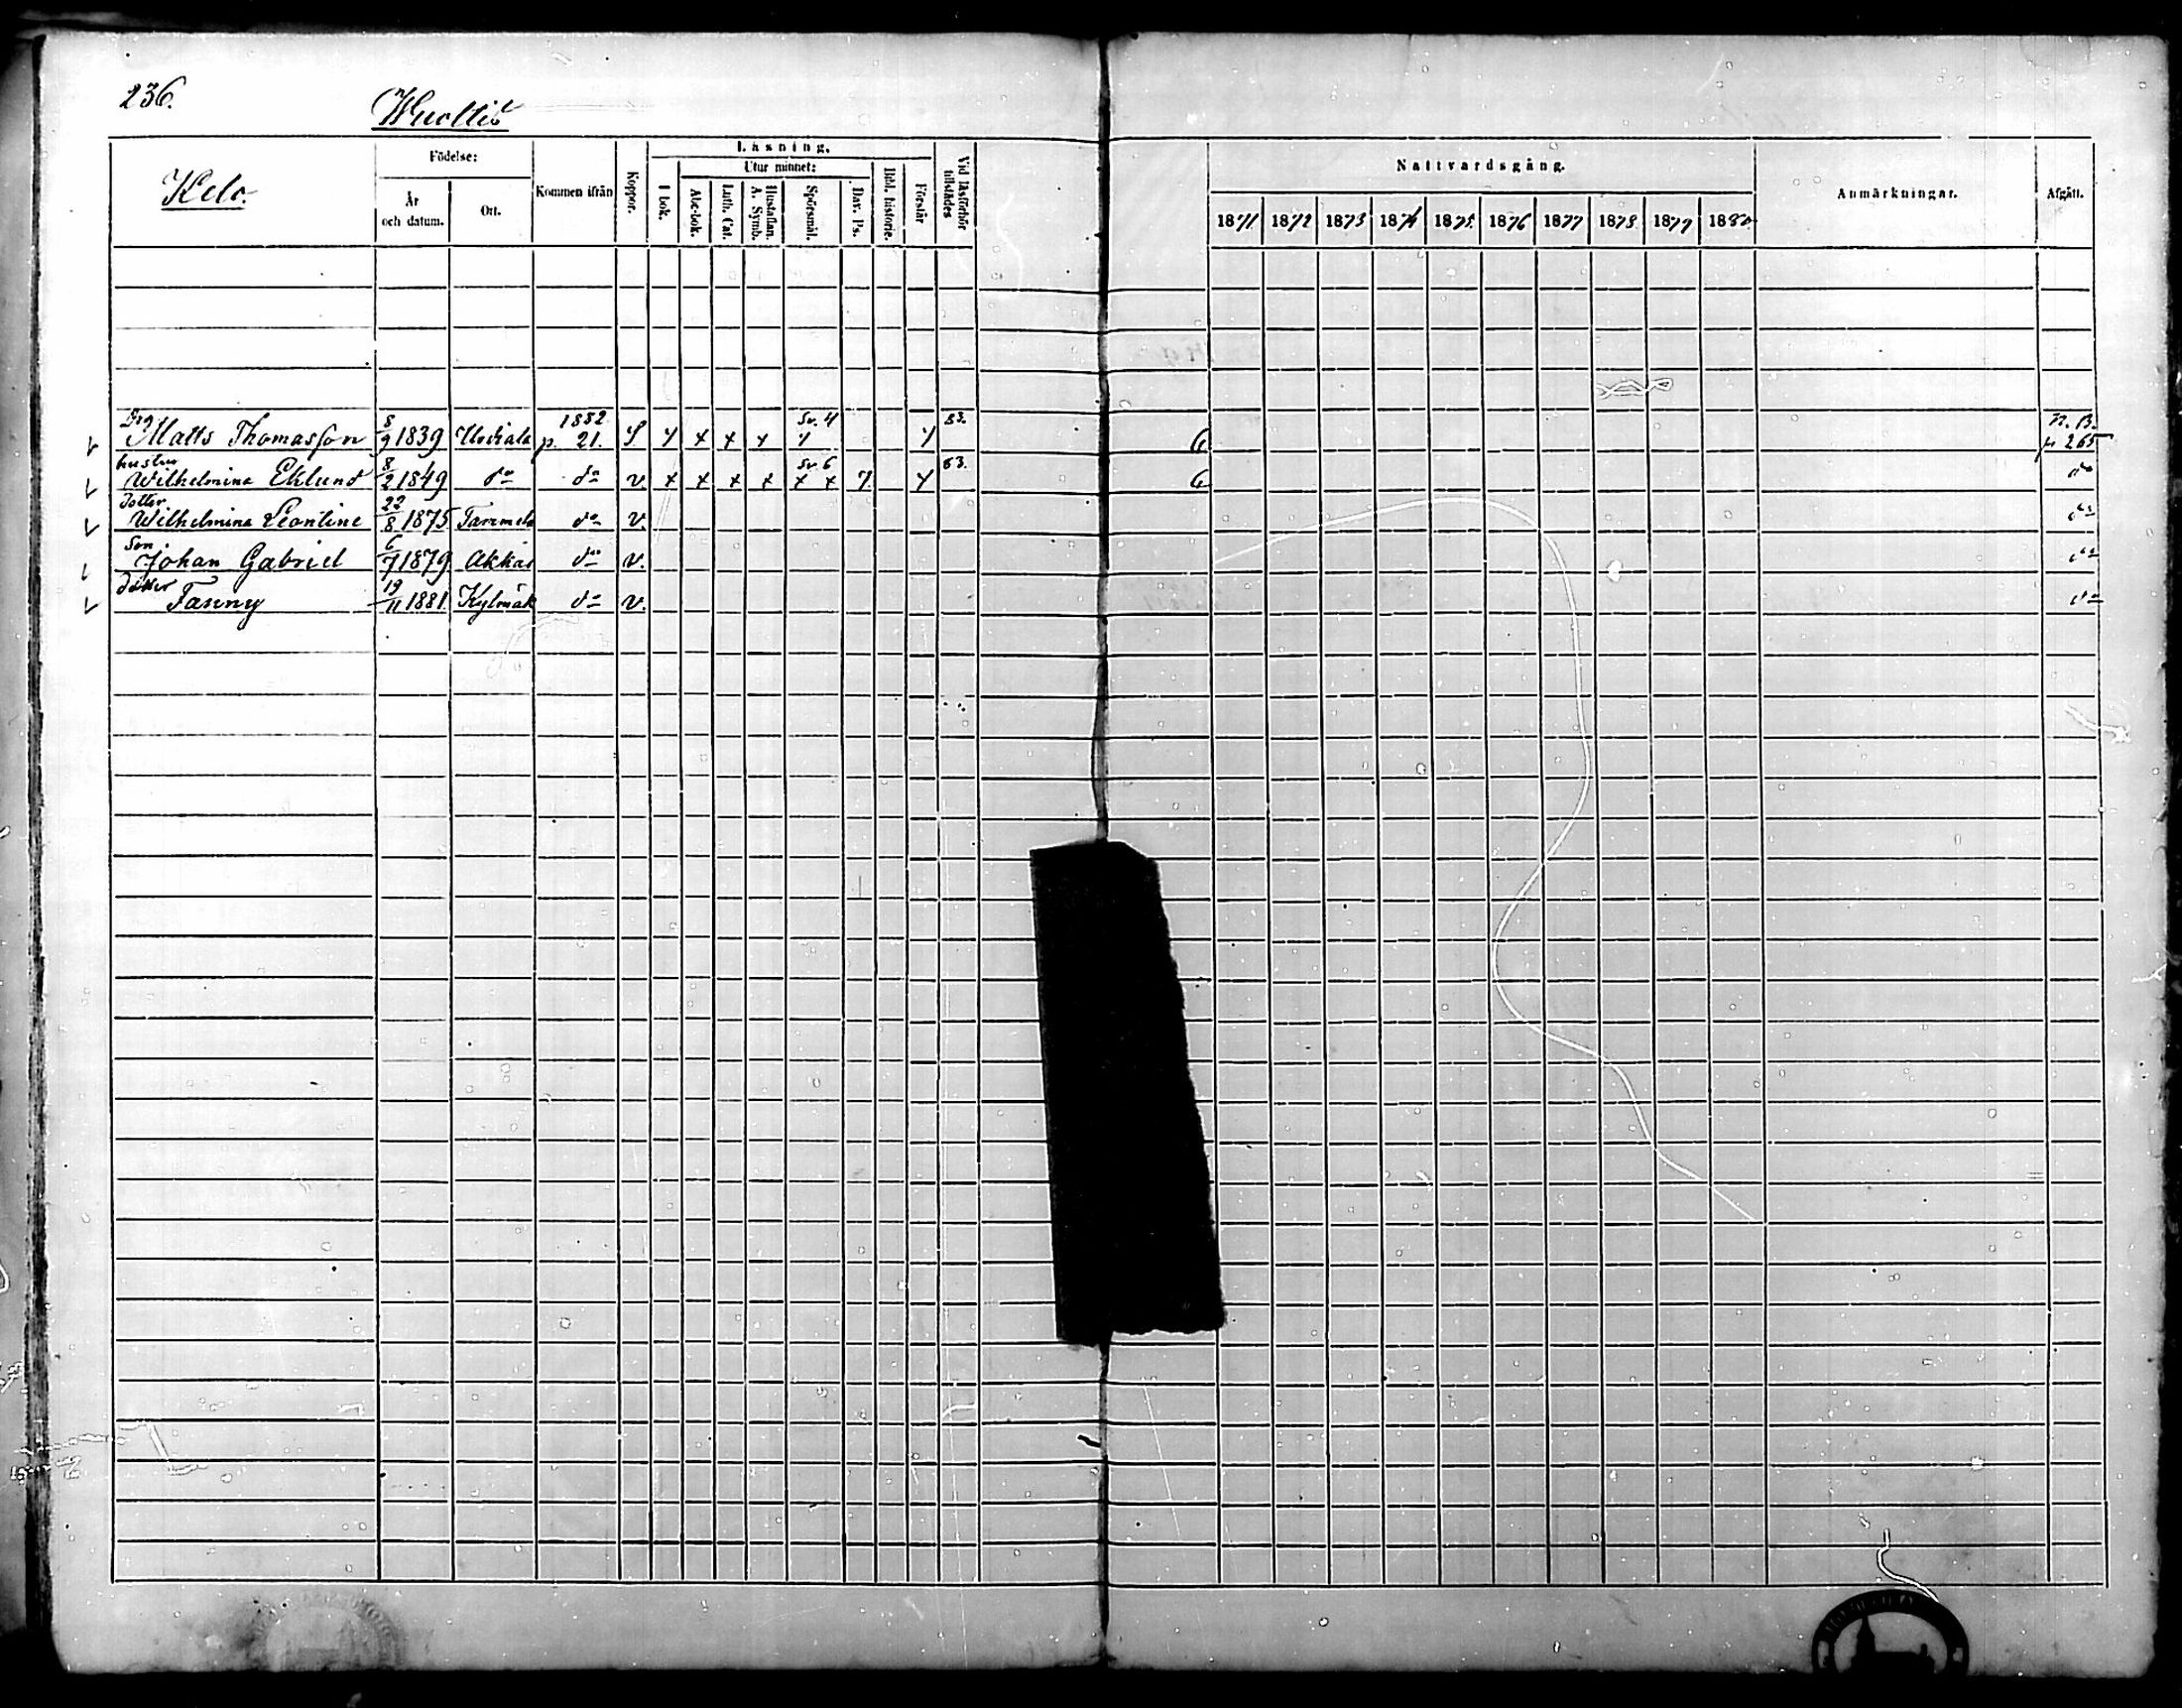 236.
Wuoltis
Kelo.
Födelse:
År och datum.
Ort.
Kommen ifrån
Koppor.
Läsning.
I bok.
Utur minnet:
Abc-bok.
Luth. Cat.
Hustaflan. A. Symb.
Spörsmål.
Dav. Ps.
Bibl. historie.
Förstår
Vid läsförhör tillstädes
Nattvardsgång.
1871 1872 1873 1874 1875 1876 1877 1878 1879 1880
Anmärkningar.
Afgått.
Matts Thomasson 8/9 1839 Urdiala 1882 p. 21. Sv. 4 83. N. B. p 265
hustru Wilhelmina Eklund 8/2 1849 do do v. Sv 6 83. do
dotter Wilhelmina Leontine 22/8 1875 Tammela do v. do
Son Johan Gabriel 6/7 1879 Akkas do v. do
dotter Fanny 19/11 1881 Kylmäk do v. do